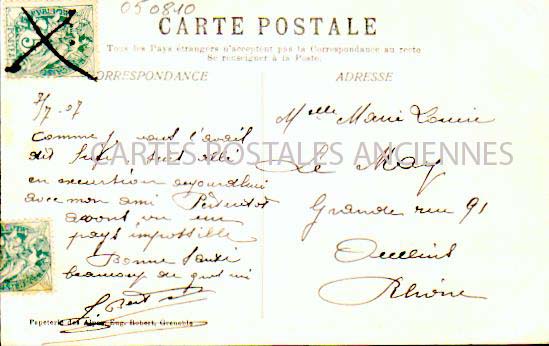 050810
CARTE POSTALE
Tous les Pays étrangers n'acceptent pas la Correspondance au recto
Se renseigner à la Poste.
CORRESPONDANCE
ADRESSE
7/7 07
Comme je vous l'avait
dit suis allé
en excursion aujourdhui
avec mon ami
avons vu un
pays impossible
Bonne Santé
beaucoup de
Melle Marie Louise
Le May
Grande rue 91
Oullins
Rhône
CARTES POSTALES ANCIENNES
Papeterie des Alpes, Eug. Robert, Grenoble